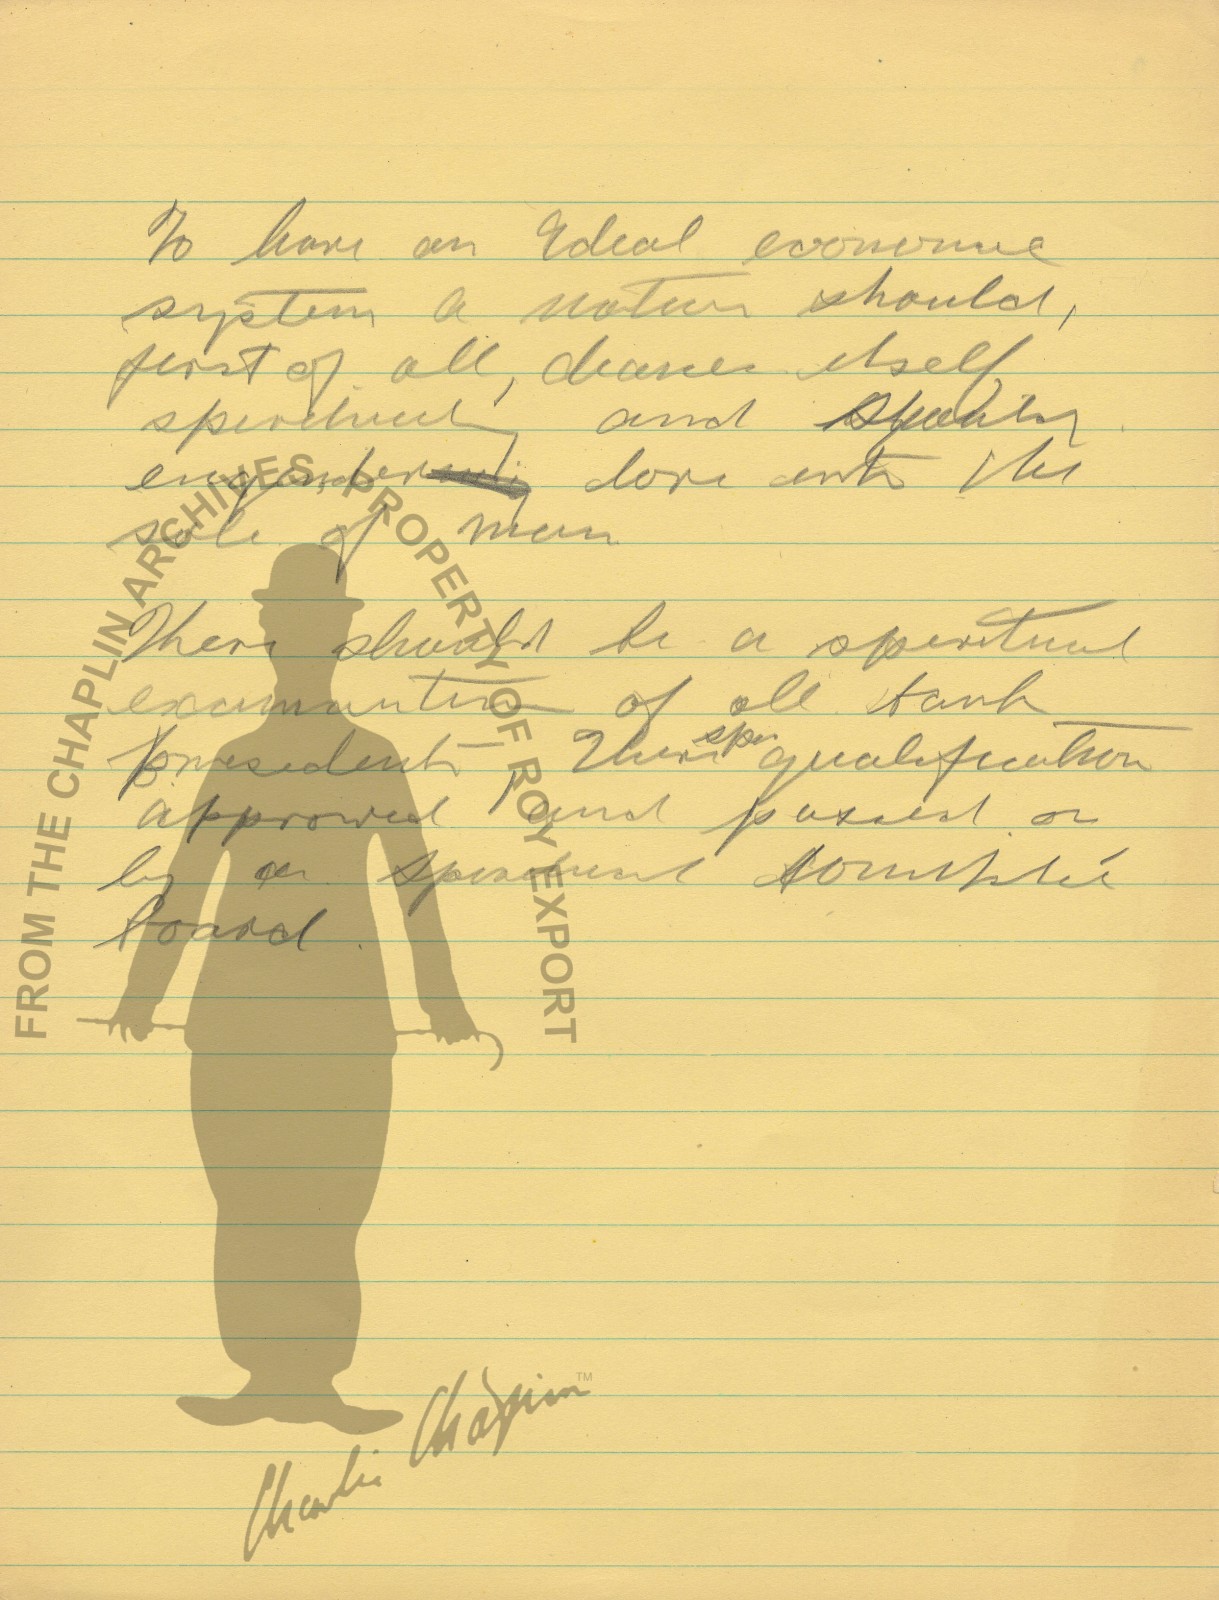 To have an Ideal economic
system a nation should,
first of all, cleanse itself
spiritually and
engender love into the
sole of man
There should be a spiritual
examination of all bank
presidents, there spir qualification
approved and passed on
by a spiritual
board.
FROM THE CHAPLIN ARCHIVES, PROPERTY OF ROY EXPORT
Charlie Chaplin™